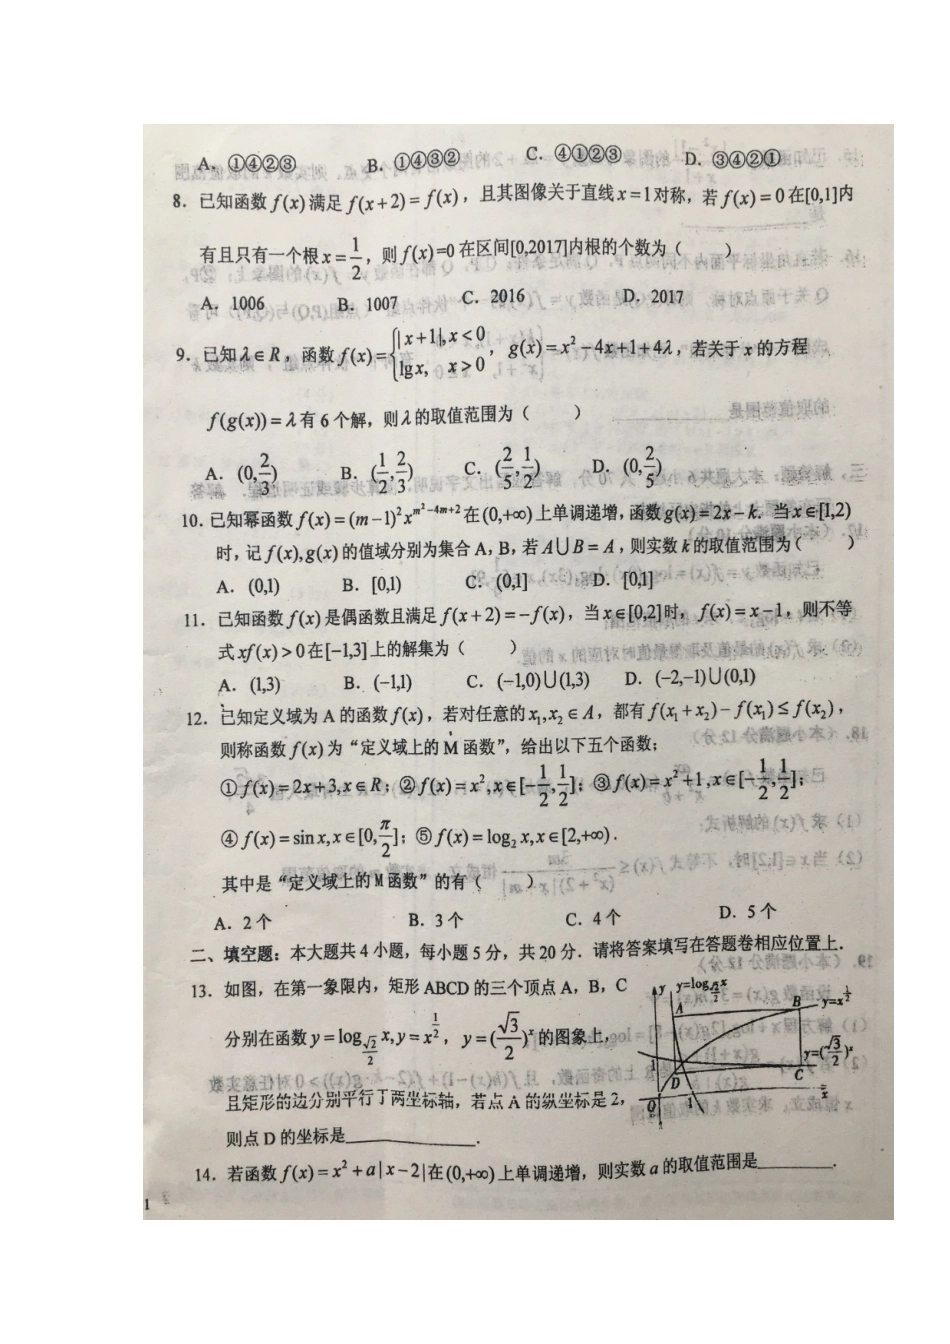 A. ①④②③ B. ①④③② C. ④①②③ D. ③④②①
8. 已知函数 f(x) 满足 f(x+2)=f(x)，且其图像关于直线 x=1 对称，若 f(x)=0 在[0,1]内
有且只有一个根 x=1/2，则 f(x)=0 在区间[0,2017]内根的个数为（ ）
A. 1006 B. 1007 C. 2016 D. 2017
9. 已知 λ∈R，函数 f(x)={|x+1|, x<0 ; lg x, x>0，g(x)=x²-4x+1+4λ，若关于 x 的方程
f(g(x))=λ 有 6 个解，则 λ 的取值范围为（ ）
A. (0,2/3) B. (1/2,2/3) C. (2/5,1/2) D. (0,2/5)
10. 已知幂函数 f(x)=(m-1)²x^(m²-4m+2) 在(0,+∞)上单调递增，函数 g(x)=2x-k. 当 x∈[1,2)
时，记 f(x),g(x) 的值域分别为集合 A，B，若 A∪B=A，则实数 k 的取值范围为（ ）
A. (0,1) B. [0,1) C. (0,1] D. [0,1]
11. 已知函数 f(x) 是偶函数且满足 f(x+2)=-f(x)，当 x∈[0,2]时，f(x)=x-1，则不等
式 xf(x)>0 在[-1,3]上的解集为（ ）
A. (1,3) B. (-1,1) C. (-1,0)∪(1,3) D. (-2,-1)∪(0,1)
12. 已知定义域为 A 的函数 f(x)，若对任意的 x₁,x₂∈A，都有 f(x₁+x₂)-f(x₁)≤f(x₂)，
则称函数 f(x) 为“定义域上的 M 函数”，给出以下五个函数；
①f(x)=2x+3,x∈R；②f(x)=x²,x∈[-1/2,1/2]；③f(x)=x²+1,x∈[-1/2,1/2]；
④f(x)=sin x,x∈[0,π/2]；⑤f(x)=log₂x,x∈[2,+∞).
其中是“定义域上的 M 函数”的有（ ）
A. 2 个 B. 3 个 C. 4 个 D. 5 个
二、填空题：本大题共 4 小题，每小题 5 分，共 20 分．请将答案填写在答题卷相应位置上．
13. 如图，在第一象限内，矩形 ABCD 的三个顶点 A，B，C
分别在函数 y=log_(√2/2) x, y=x^(1/2)，y=(√3/2)^x 的图象上，
且矩形的边分别平行于两坐标轴，若点 A 的纵坐标是 2，
则点 D 的坐标是________．
y y=log_(√2/2) x
A B y=x^(1/2)
1 D C y=(√3/2)^x
O 1 x
14. 若函数 f(x)=x²+a|x-2|在(0,+∞)上单调递增，则实数 a 的取值范围是________．
1